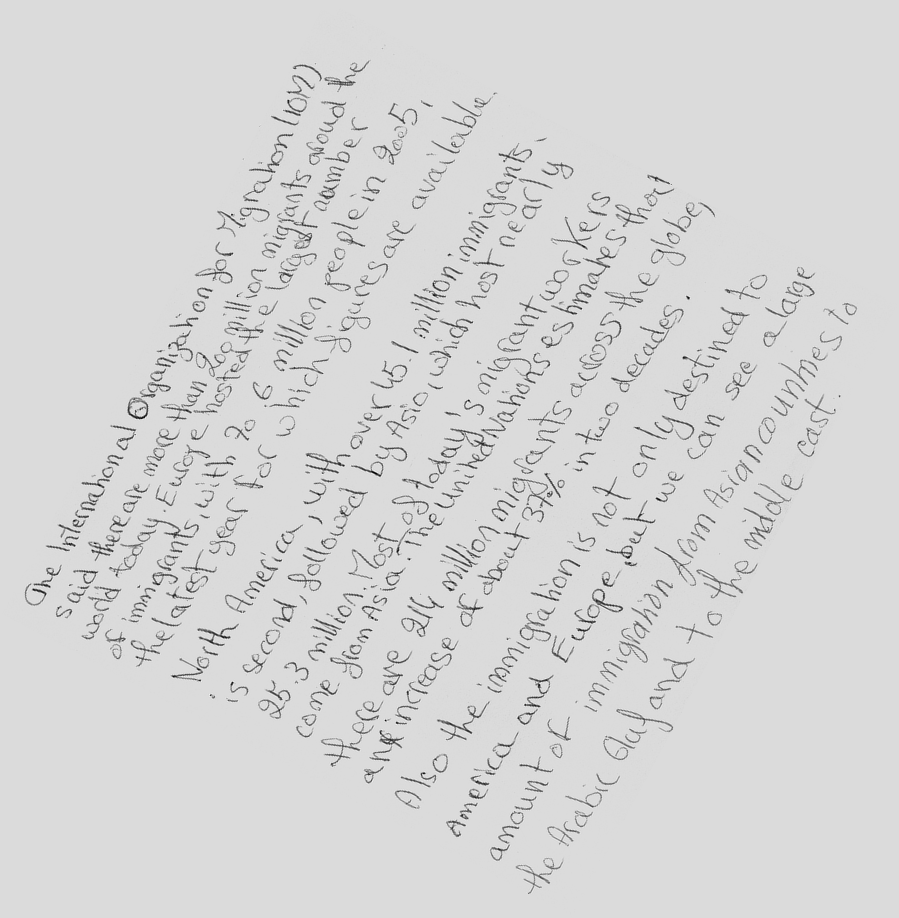 The International Organization for Migration (IOM)
said there are more than 200 million migrants aroud the
world today. Europe hosted the largest number
of immigrants, with 70 6 million people in 2005,
the latest year for which figures are available.
North America, with over 45.1 million immigrants,
is second, followed by Asia, which host nearly
25.3 million. Most of today's migrant workers
come from Asia. The United Nations estimates that
there are 214 million migrants across the globe,
an increase of about 37% in two decades.
Also the immigration is not only destined to
America and Europe, but we can see a large
amount of immigration from Asian countries to
the Arabic Gluf and to the middle east.